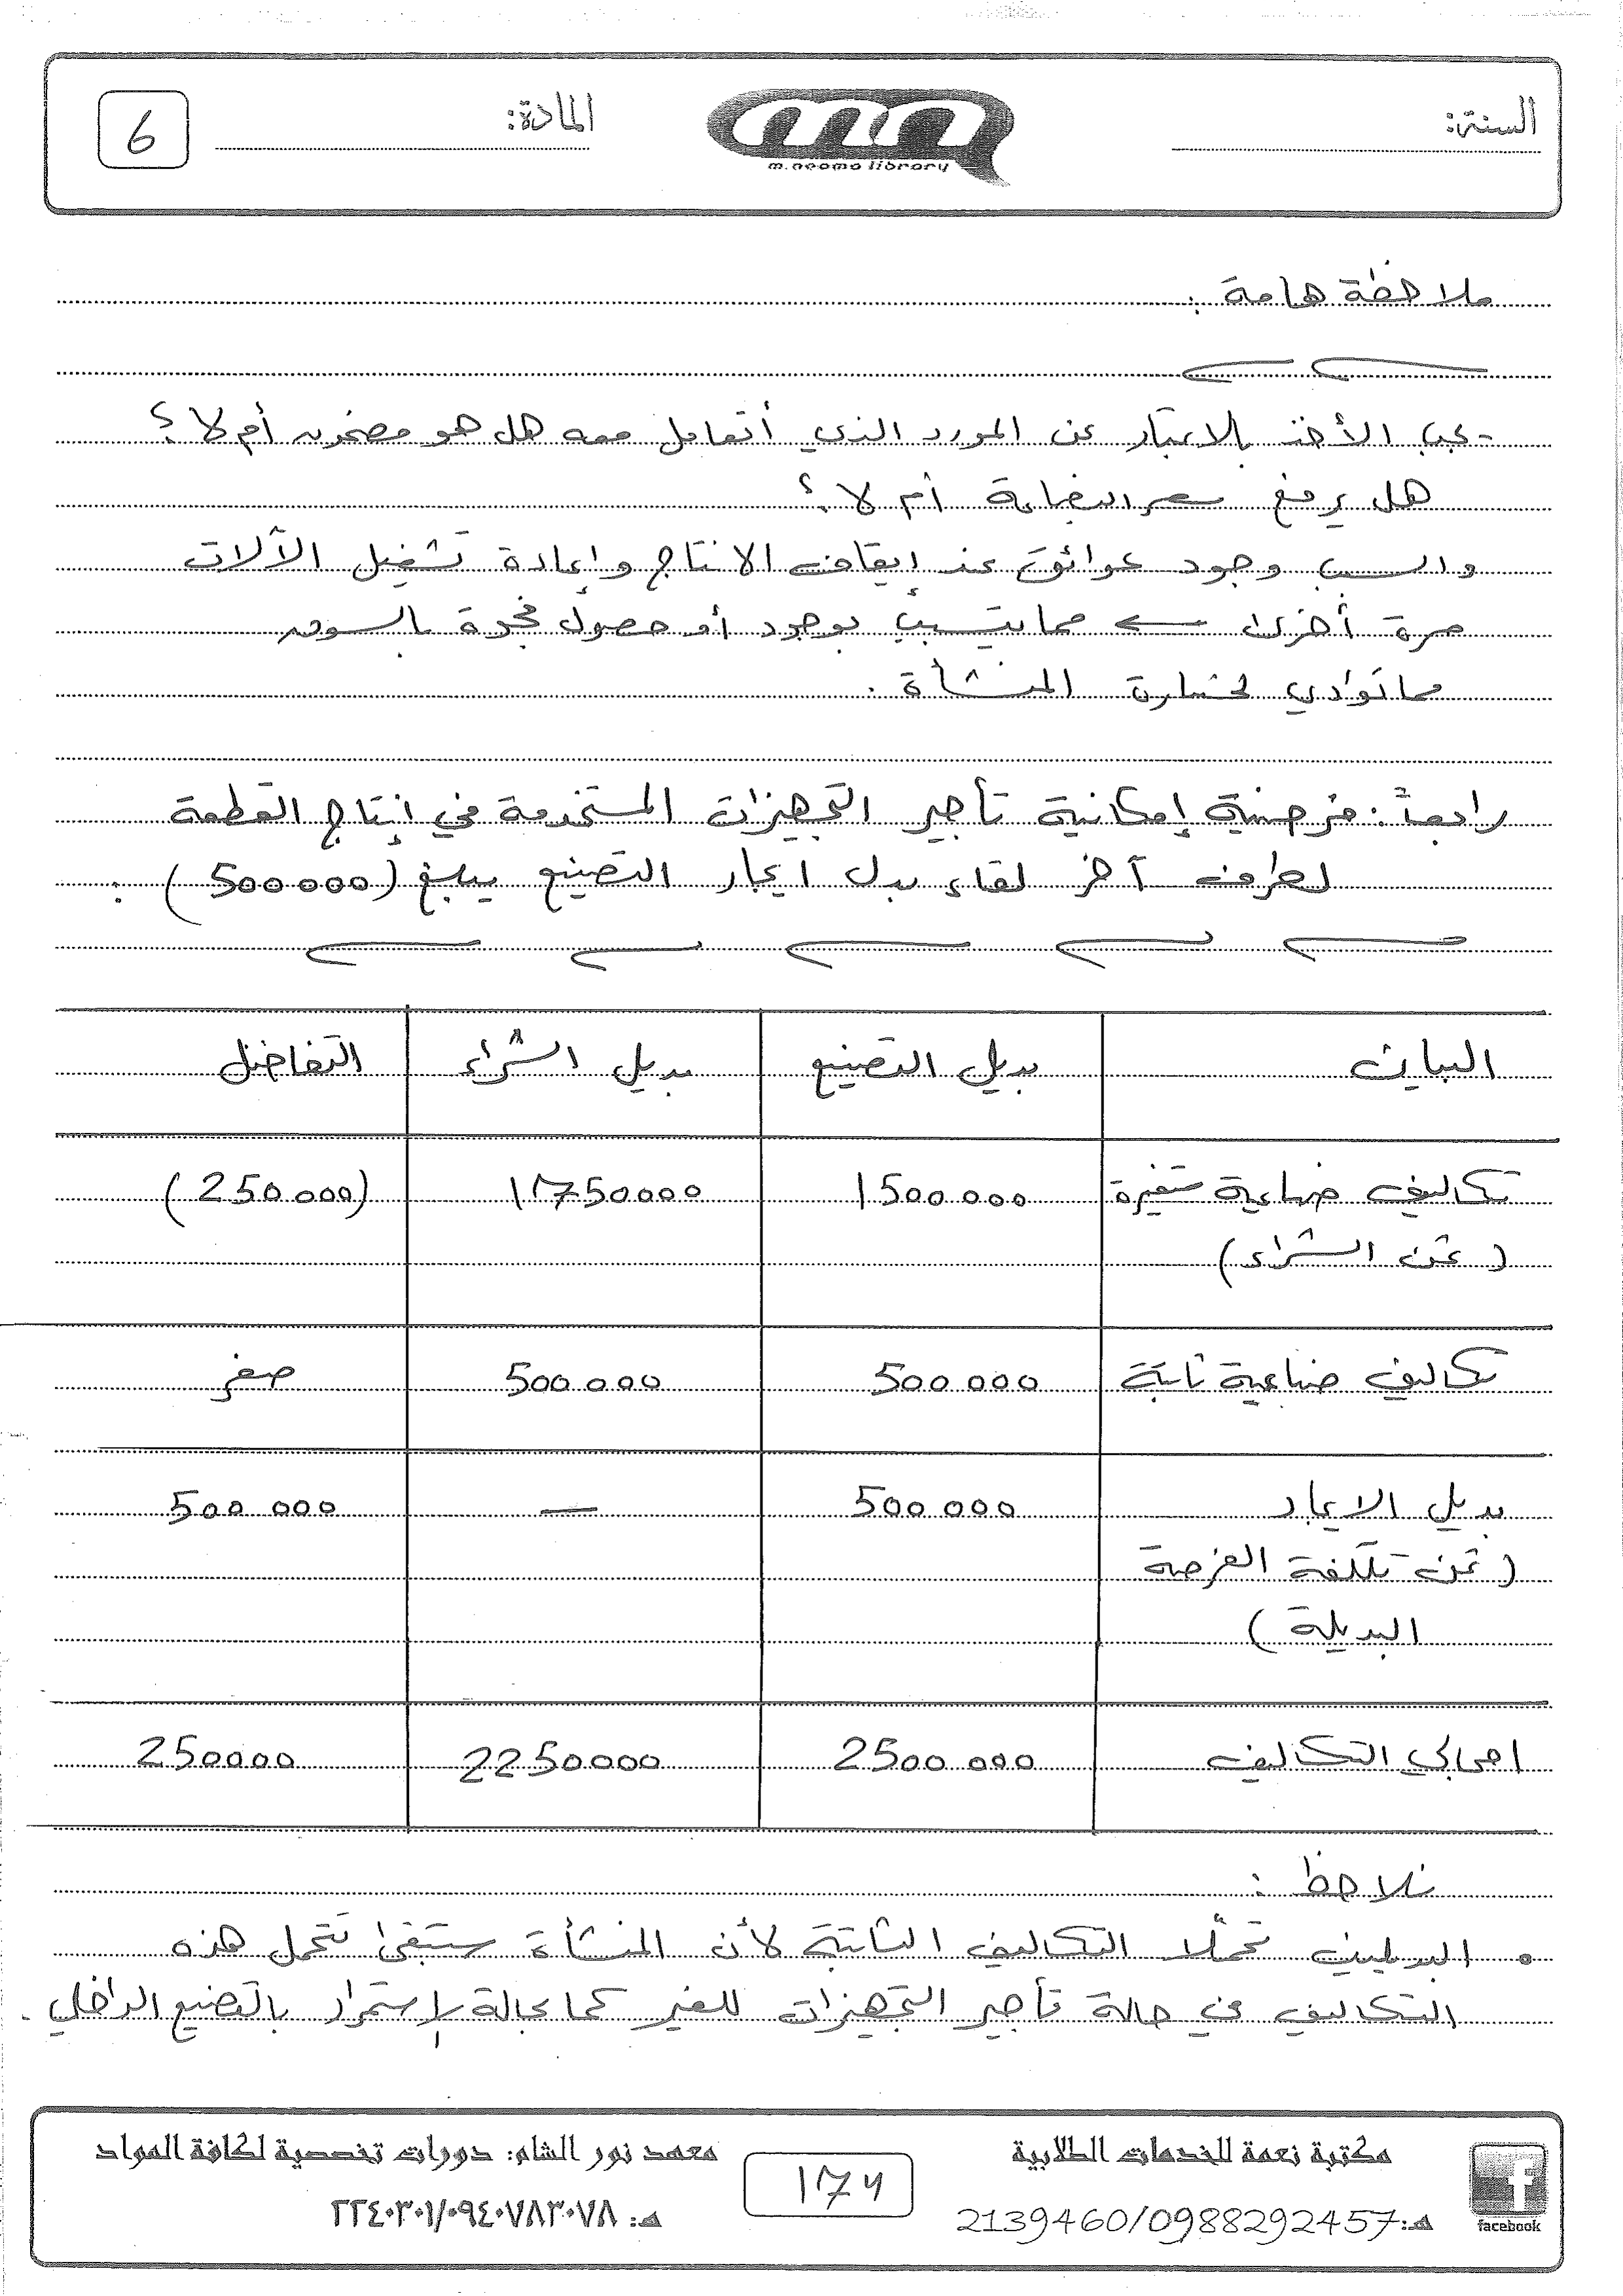 السنة:
المادة:
6
m.neoma library
ملاحظة هامة :
- يجب الأخذ بالاعتبار عن المورد الذي أتعامل معه هل هو مضمون أم لا ؟
هل يرفع سعر البضاعة أم لا ؟
والسبب وجود عوائق عند إيقاف الانتاج وإعادة تشغيل الآلات
مرة أخرى ← مما يتسبب بوجود أو حصول فجوة بالسوق
مما توادي لخسارة المنشأة .
رابعاً : فرضية إمكانية تأجير التجهيزات المستخدمة في إنتاج القطعة
لطرف آخر لقاء بدل ايجار التصنيع يبلغ (500000) :
البيان بديل التصنيع بديل الشراء التفاضل
تكاليف صناعية متغيرة 1500000 1750000 (250000)
(ثمن الشراء)
تكاليف صناعية ثابتة 500000 500000 صفر
بديل الايجار 500000 — 500000
(ثمن تكلفة الفرصة
البديلة)
اجمالي التكاليف 2500000 2250000 250000
نلاحظ :
• البديلين تحملا التكاليف الثابتة لأن المنشأة ستبقى تتحمل هذه
التكاليف في حالة تأجير التجهيزات للغير كما بحالة إستمرار بالتصنيع الداخلي .
مكتبة نعمة للخدمات الطلابية
محمد نور الشام: دورات تخصصية لكافة المواد
هـ: 2139460/0988292457
هـ: ٢٢٤٠٣٠١/٠٩٤٠٧٨٣٠٧٨
facebook